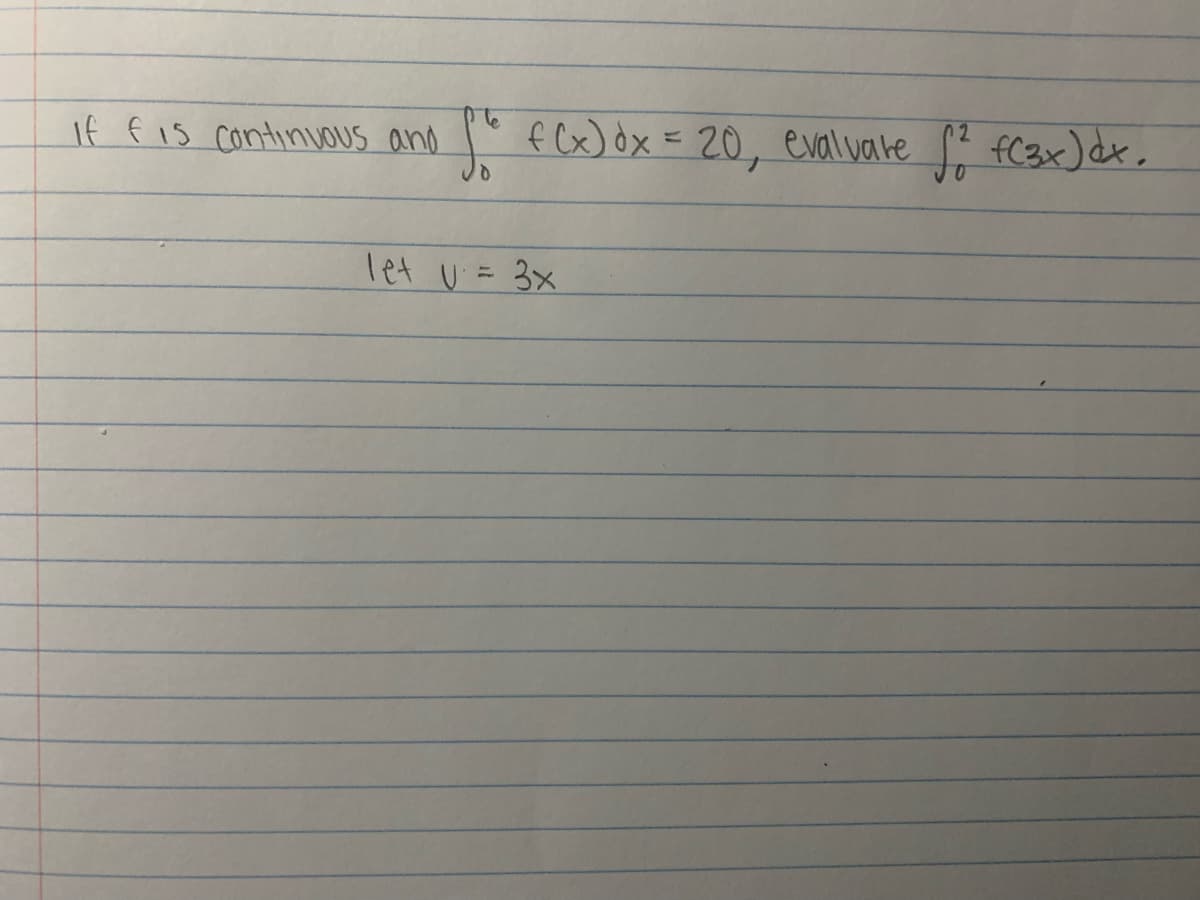 If f is continuous and ∫₀⁶ f(x)dx = 20, evaluate ∫₀² f(3x)dx.
let u = 3x